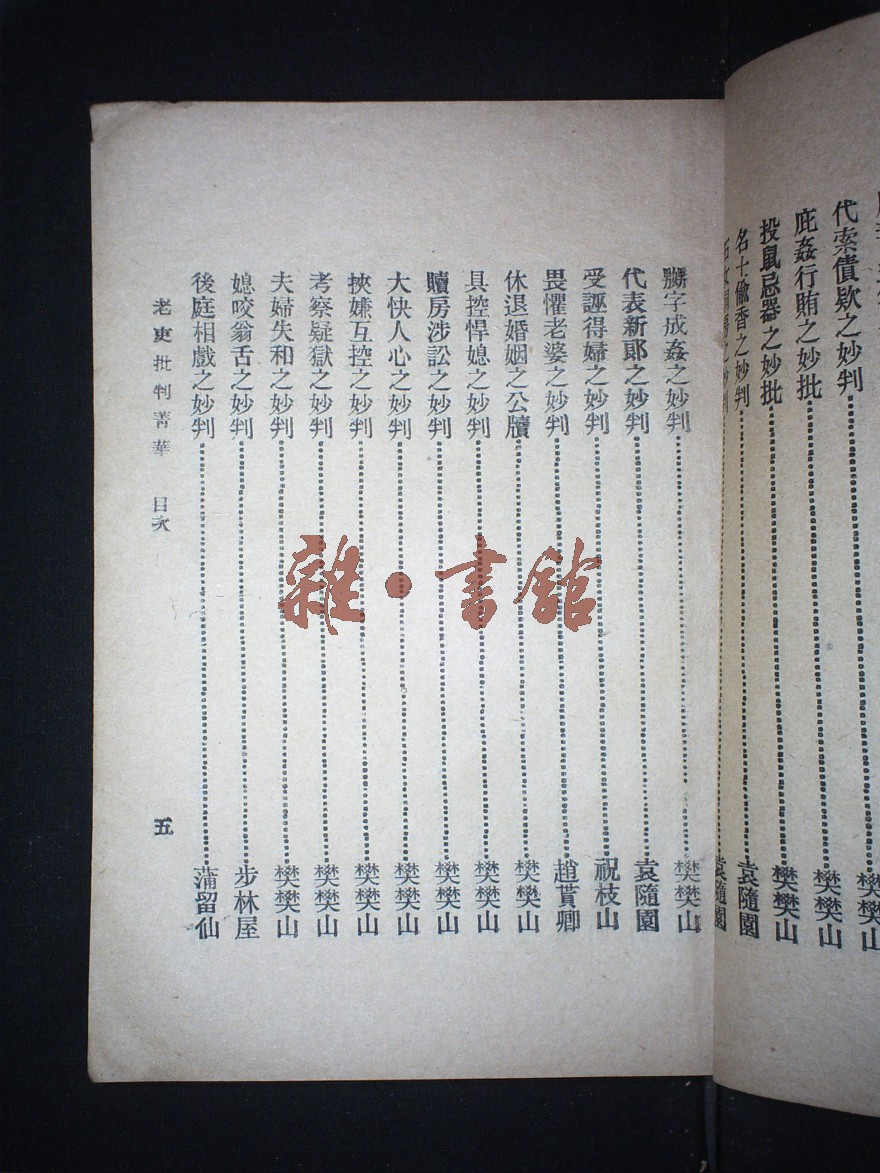 代索債欵之妙判 樊樊山
庇姦行賄之妙批 樊樊山
投鼠忌器之妙批 樊樊山
名士偸香之妙判 袁隨園
之妙判 袁隨園
嬲字成姦之妙判 樊樊山
代表新郞之妙判 袁隨園
受誣得婦之妙判 祝枝山
畏懼老婆之妙判 趙貰卿
休退婚姻之公牘 樊樊山
具控悍媳之妙判 樊樊山
贖房涉訟之妙判 樊樊山
大快人心之妙判 樊樊山
挾嫌互控之妙判 樊樊山
考察疑獄之妙判 樊樊山
夫婦失和之妙判 樊樊山
媳咬翁舌之妙判 步林屋
後庭相戲之妙判 蒲留仙
老吏批判菁華 目次
五
雜·書館